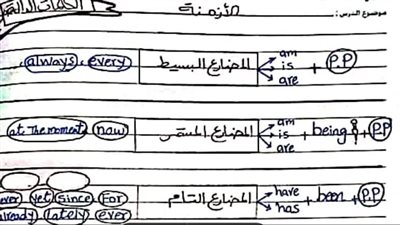 موضوع الدرس: الأزمنة الكلمات الدالة
always, every المضارع البسيط am is are + P.P
at the moment now المضارع المستمر am is are + being + P.P
ever yet since For المضارع التام have has + been + P.P
already lately ever